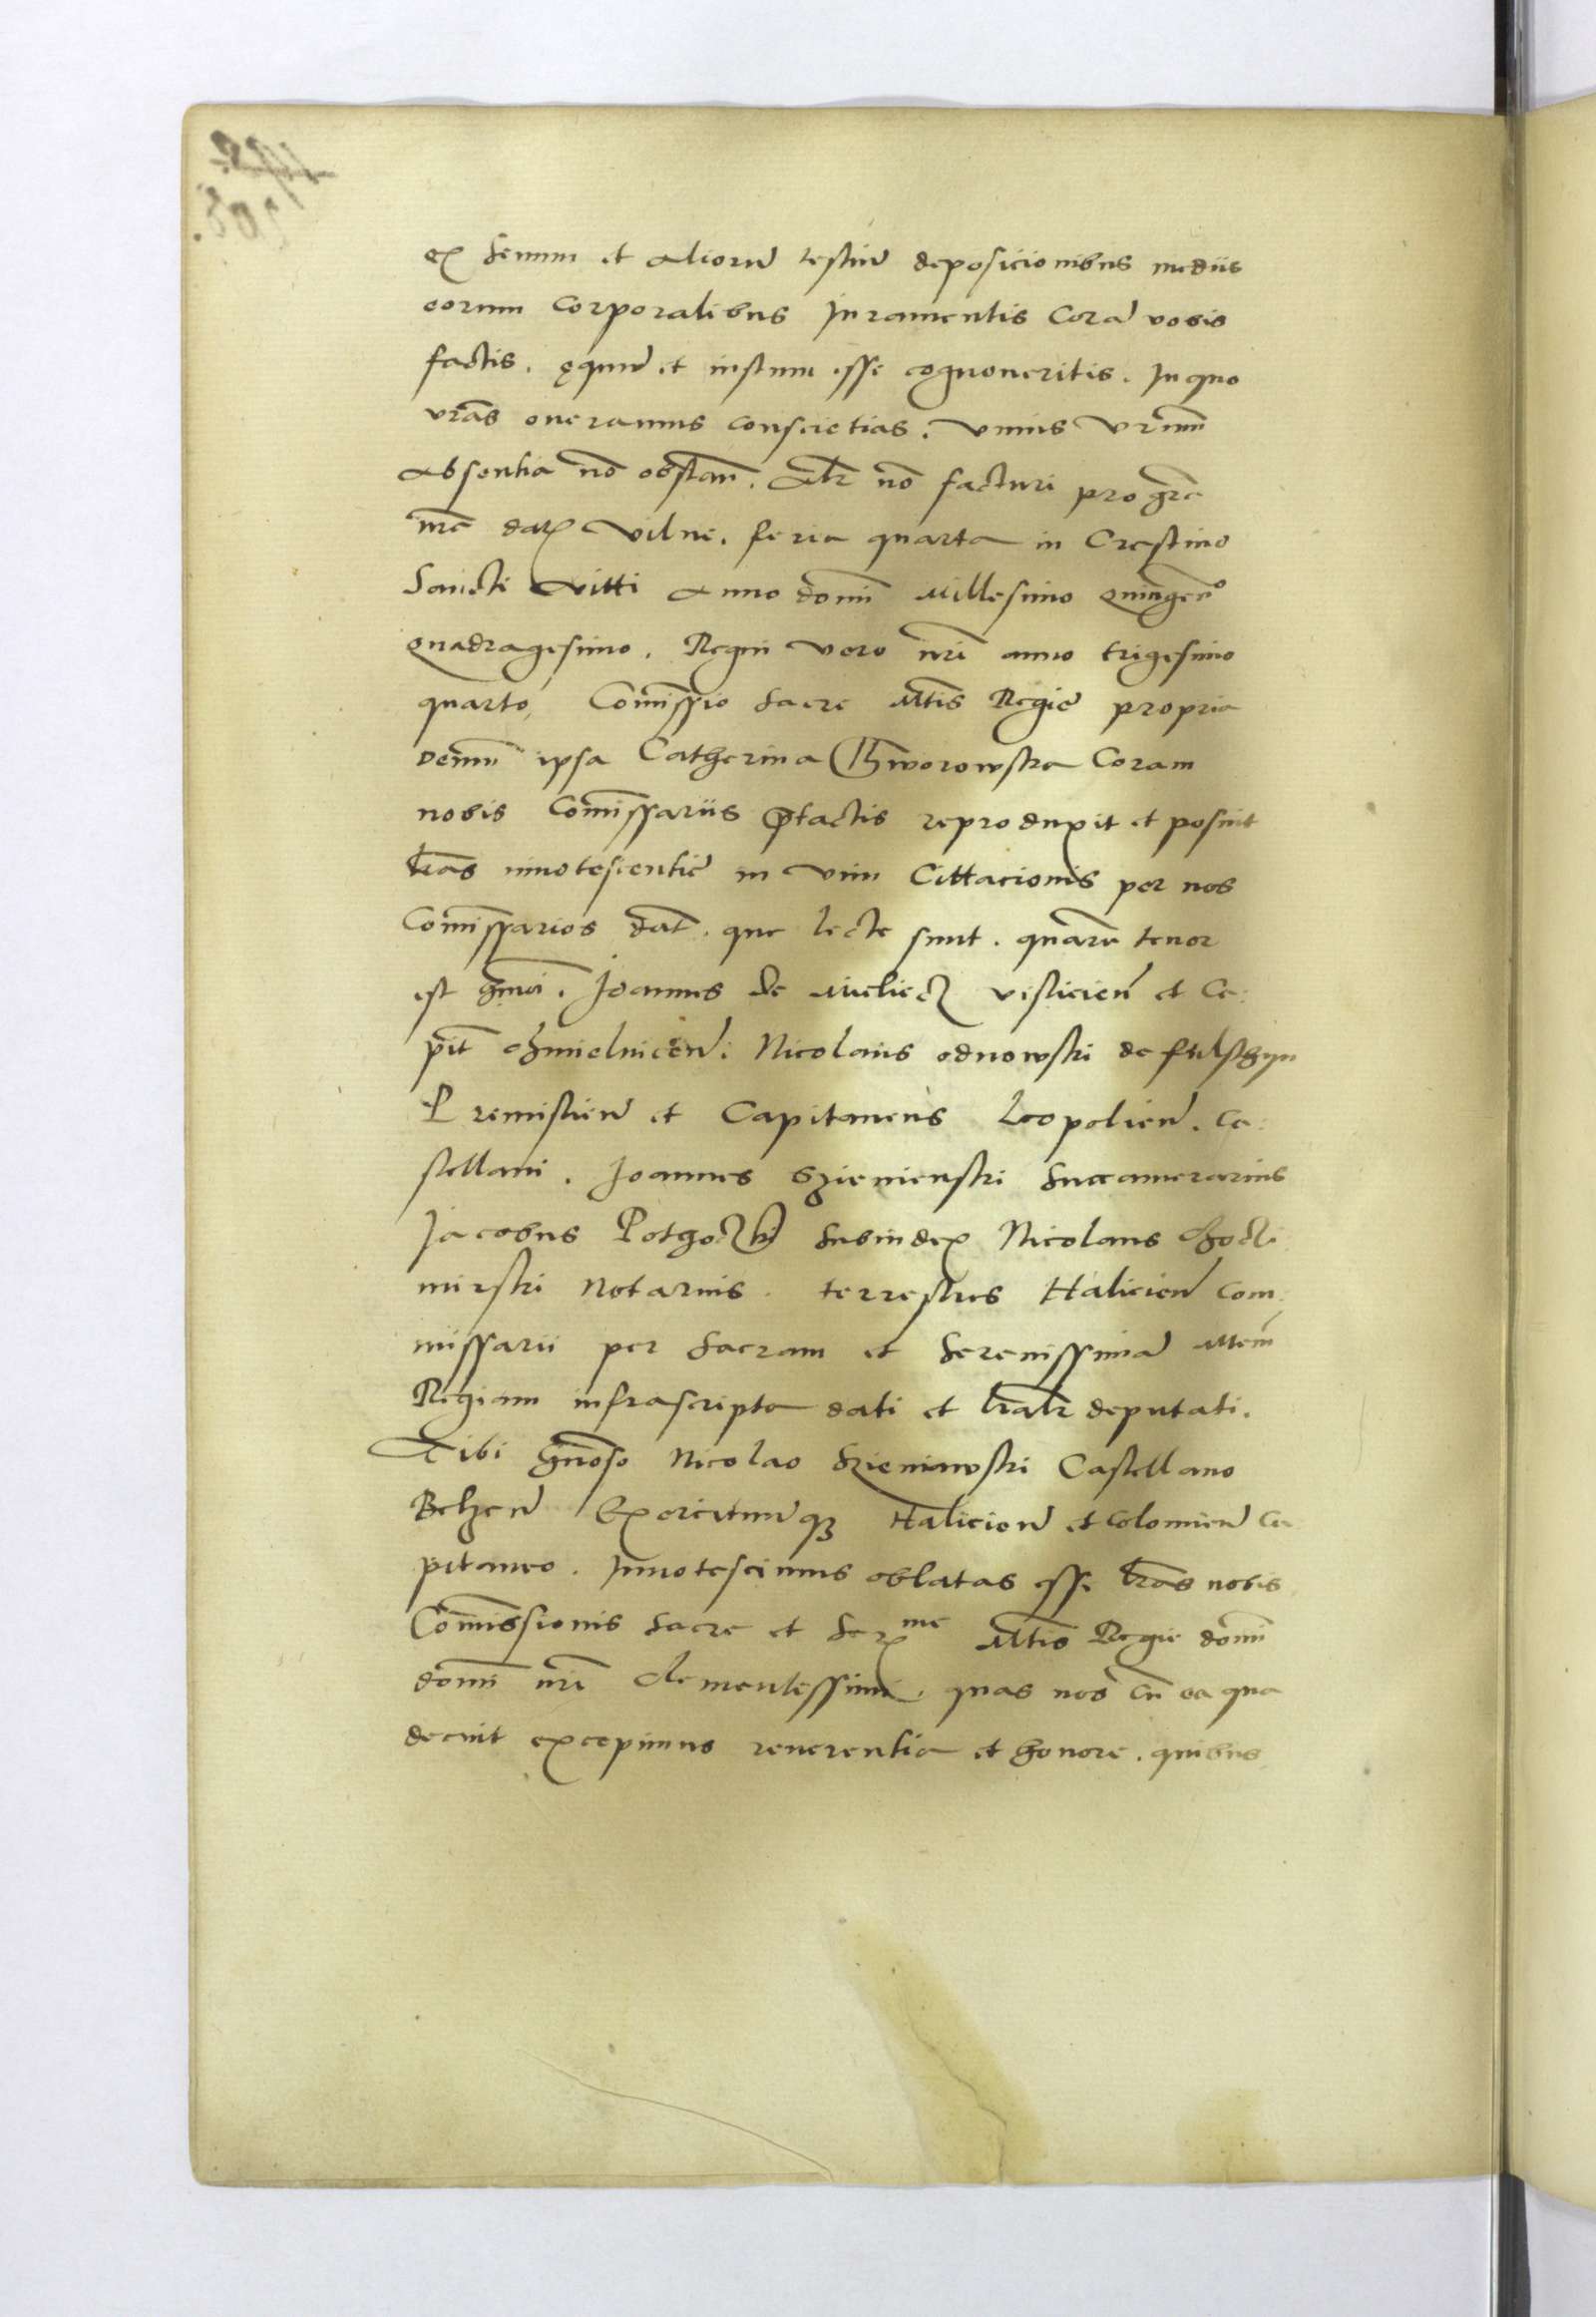 ex senum et aliorũ testiũ deposicionibus mediis
eorum corporalibus Juramentis Corã vobis
factis. ęquũ et iustum esse cognoueritis. In quo
vr̃as oneramus conscĩetias. vnius vr̃um
Absentia nõ obstañ. Alr̃ nõ facturi pro gr̃a
nr̃a dat̃ Vilne. feria quarta in Crastino
Sancti Vitti Anno domĩ Millesimo Quingen̊
Quadragesimo. Regni vero nr̃i anno trigesimo
quarto, Com̃issio Sacre Mt̃is Regie propria
Demũ ipsa Catherina Gworowska Coram
nobis Com̃issariis p̃factis reproduxit et posuit
lr̃as innotescentie in vim Cittacionis per nos
Com̃issarios dat̃. que lecte sunt. quar̃u tenor
est hm̃oi. Joannes De Mielecz visliciẽn et Ca:
pit̃ chmielniceñ: Nicolaus odnowski de fulschyn
Premisliẽn et Capitaneus Leopoliẽn. Ca:
stellani. Joannes Szienienski Succamerarius
Jacobus Pothoczki Subiudex Nicolaus Choczi
mirski Notarius. terrestres Haliciẽn Com:
missarii per Sacram et Serenissimã Mtem̃
Regiam infrascripta dati et lr̃alr̃ deputati.
Tibi gñoso Nicolao Szieniawski Castellano
Belzeñ Exercituũ q3 Haliciẽn et Colomieñ Ca
pitaneo. Innotescimus oblatas esse lr̃as nobis
Com̃issionis Sacre et Serme Mt̃is Regie domĩ
domĩ nr̃i clementissimi. quas nos cũ ea qua
decuit excepimus reuerentia et honore. quibus